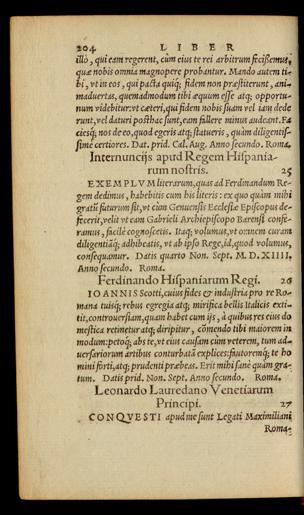 204 LIBER
illò, qui eam regerent, cùm eius te rei arbitrum fecissemus,
quæ nobis omnia magnopere probantur. Mando autem ti-
bi, vt in eos, qui pacta quiq; fidem non præstiterint, ani-
maduertas, quemadmodum tibi æquum esse atq; opportu-
num videbitur: vt cæteri, qui fidem nobis suam vel iam dede
runt, vel daturi posthac sunt, eam fallere minus audeant. Fa
ciesq; nos de eo, quod egeris atq; statueris, quàm diligentis-
simè certiores. Dat. prid. Cal. Aug. Anno secundo. Roma.
Internuncijs apud Regem Hispania-
rum nostris. 25
EXEMPLVM literarum, quas ad Ferdinandum Re-
gem dedimus, habebitis cum his literis: ex quo quàm mihi
gratũ futurum sit, vt cùm Genuensis Ecclesiæ Episcopus de-
fecerit, velit vt eam Gabrieli Archiepiscopo Barensi confe-
ramus, facilè cognoscetis. Itaq; volumus, vt omnem curam
diligentiãq; adhibeatis, vt ab ipso Rege, id, quod volumus,
consequamur. Datis quarto Non. Sept. M. D. XIIII,
Anno secundo. Roma.
Ferdinando Hispaniarum Regi. 26
IOANNIS Scotti, cuius fides & industria pro re Ro-
mana tuisq; rebus egregia atq; mirifica bellis Italicis exti-
tit, controuersiam, quam habet cum ijs, à quibus res eius do
mestica retinetur atq; diripitur, cõmendo tibi maiorem in
modum: petoq; abs te, vt eius causam cùm veterem, tum ad-
uersariorum artibus conturbatã explices: fiautoremq; te ho
mini forti, atq; prudenti præbeas. Erit mihi sanè quàm gra-
tum. Datis prid. Non. Sept. Anno secundo. Roma.
Leonardo Lauredano Venetiarum
Principi. 27
CONQVESTI apud me sunt Legati Maximiliani
Roma-